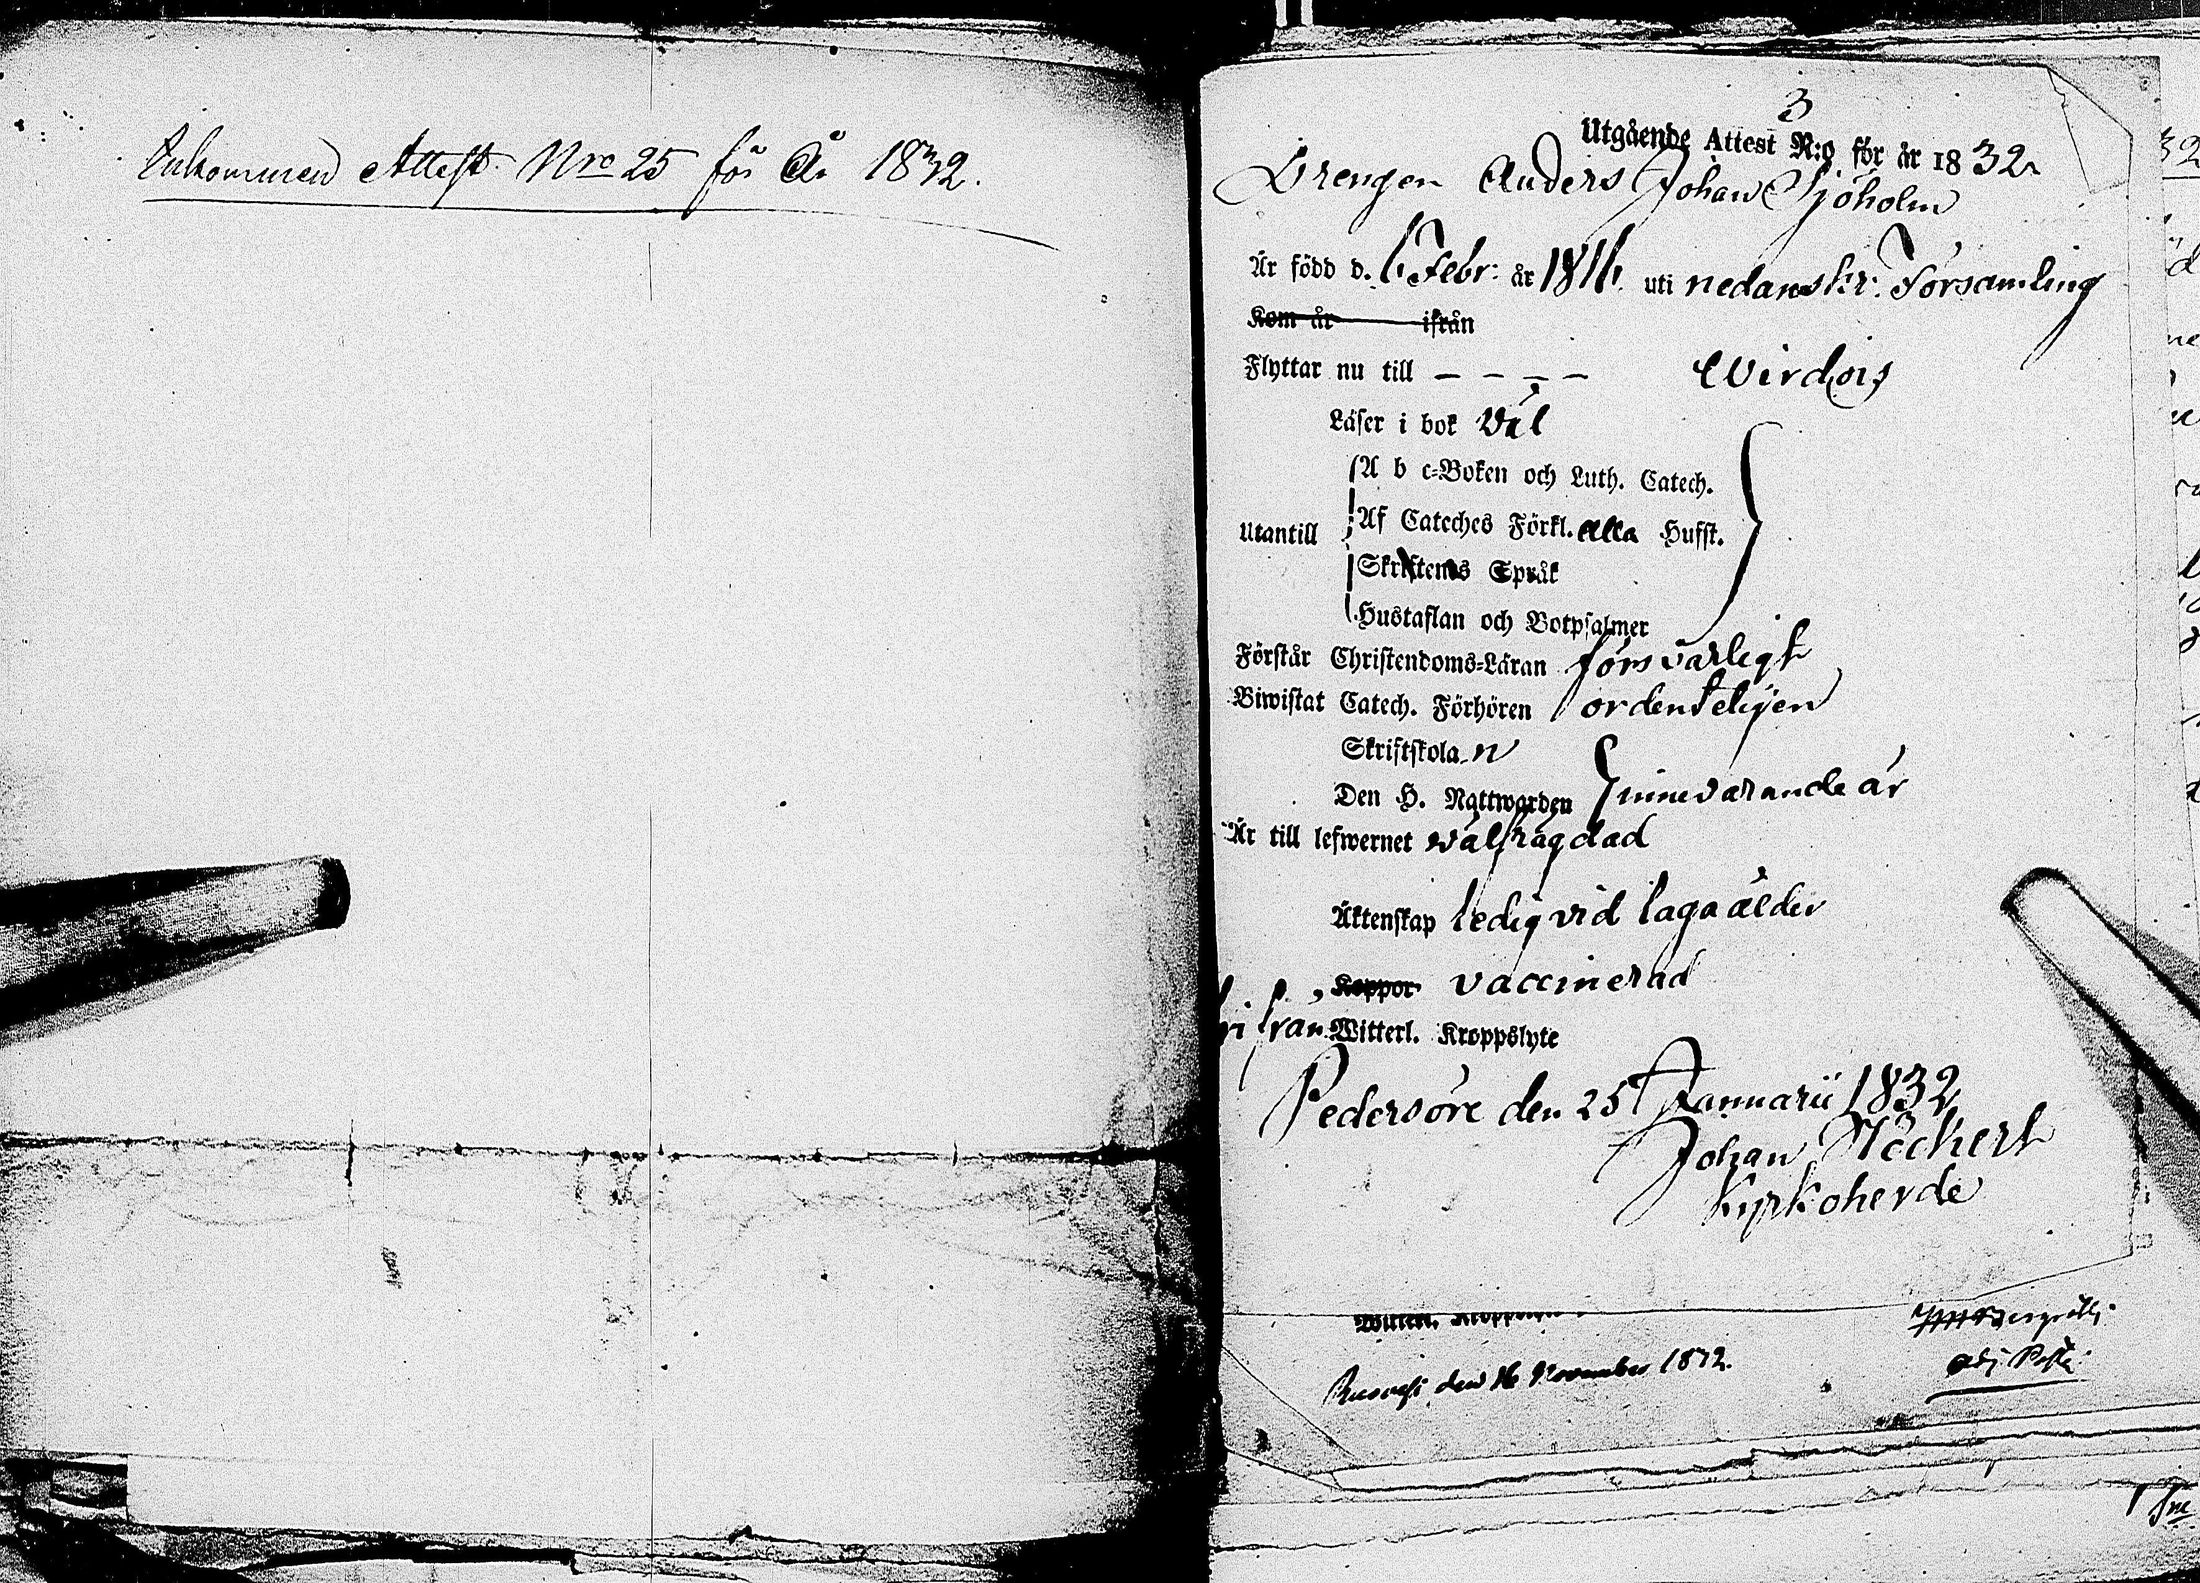 Inkommen Attest Nro 25 för År 1832.
3
Utgående Attest N:o för år 1832
Drengen Anders Johan Sjöholm
Är född d. 6 Febr: år 1816. uti nedanskr. Församling
Kom år ifrån
Flyttar nu till – – – – Wirdois
Läser i bok väl
A b c-Boken och Luth. Catech.
Utantill Af Cateches Förkl. alla Hufst.
Skriftenes Språk
Hustaflan och Botpsalmer
Förstår Christendoms-Läran försvarligt
Biwistat Catech. Förhören ordenteligen
Skriftskolan
Den H. Nattwarden innevarande år
Är till lefwernet välfrägdad
Äktenskap ledig vid laga ålder
, Koppor vaccinerad
fri från Witterl. Kroppslyte
Pedersöre den 25 Januarii 1832
Johan Höckert
Kyrkoherde
Witterl. Kroppslyte
den 16 November 1872.
adj